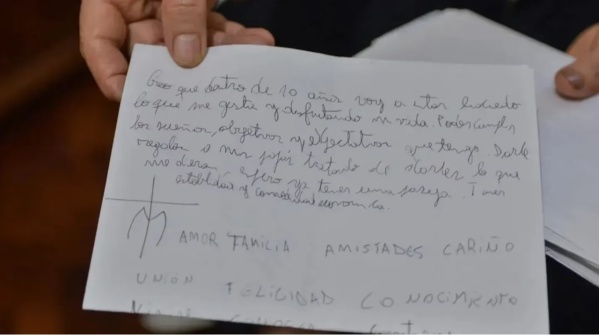 Creo que dentro de 10 años voy a estar haciendo
lo que me gusta y disfrutando mi vida. Poder cumplir
los sueños, objetivos y expectativas que tengo. Darle
regalos a mis papás tratado de darles lo que
me dieron, espero ya tener una pareja. Tener
estabilidad y comodidad economica.
AMOR FAMILIA AMISTADES CARIÑO
UNIÓN FELICIDAD CONOCIMIENTO